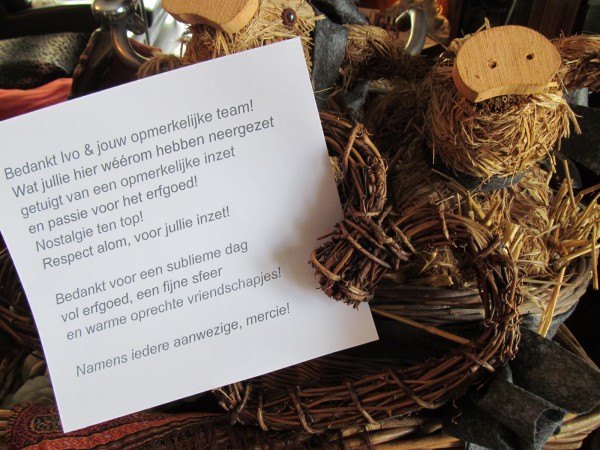 Bedankt Ivo & jouw opmerkelijke team!
Wat jullie hier wéérom hebben neergezet
getuigt van een opmerkelijke inzet
en passie voor het erfgoed!
Nostalgie ten top!
Respect alom, voor jullie inzet!
Bedankt voor een sublieme dag
vol erfgoed, een fijne sfeer
en warme oprechte vriendschapjes!
Namens iedere aanwezige, mercie!